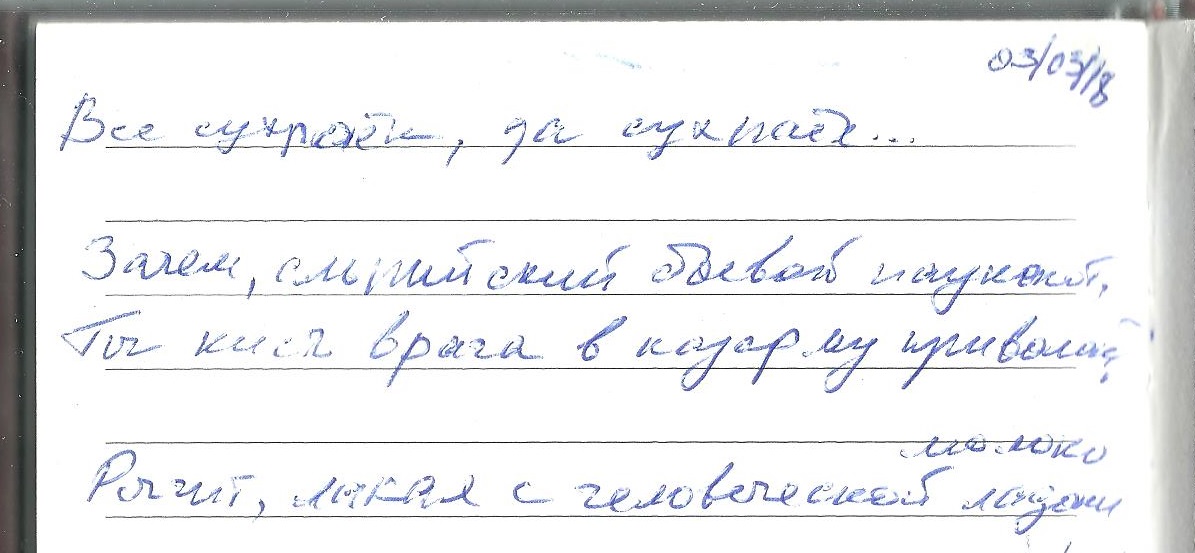 03/03/18
Все сухпаёк, да сухпаёк...
Зачем, сирийский боевой паукокот,
Ты кисть врага в казарму приволок?
молоко
Рычит, лакая с человеческой ладони